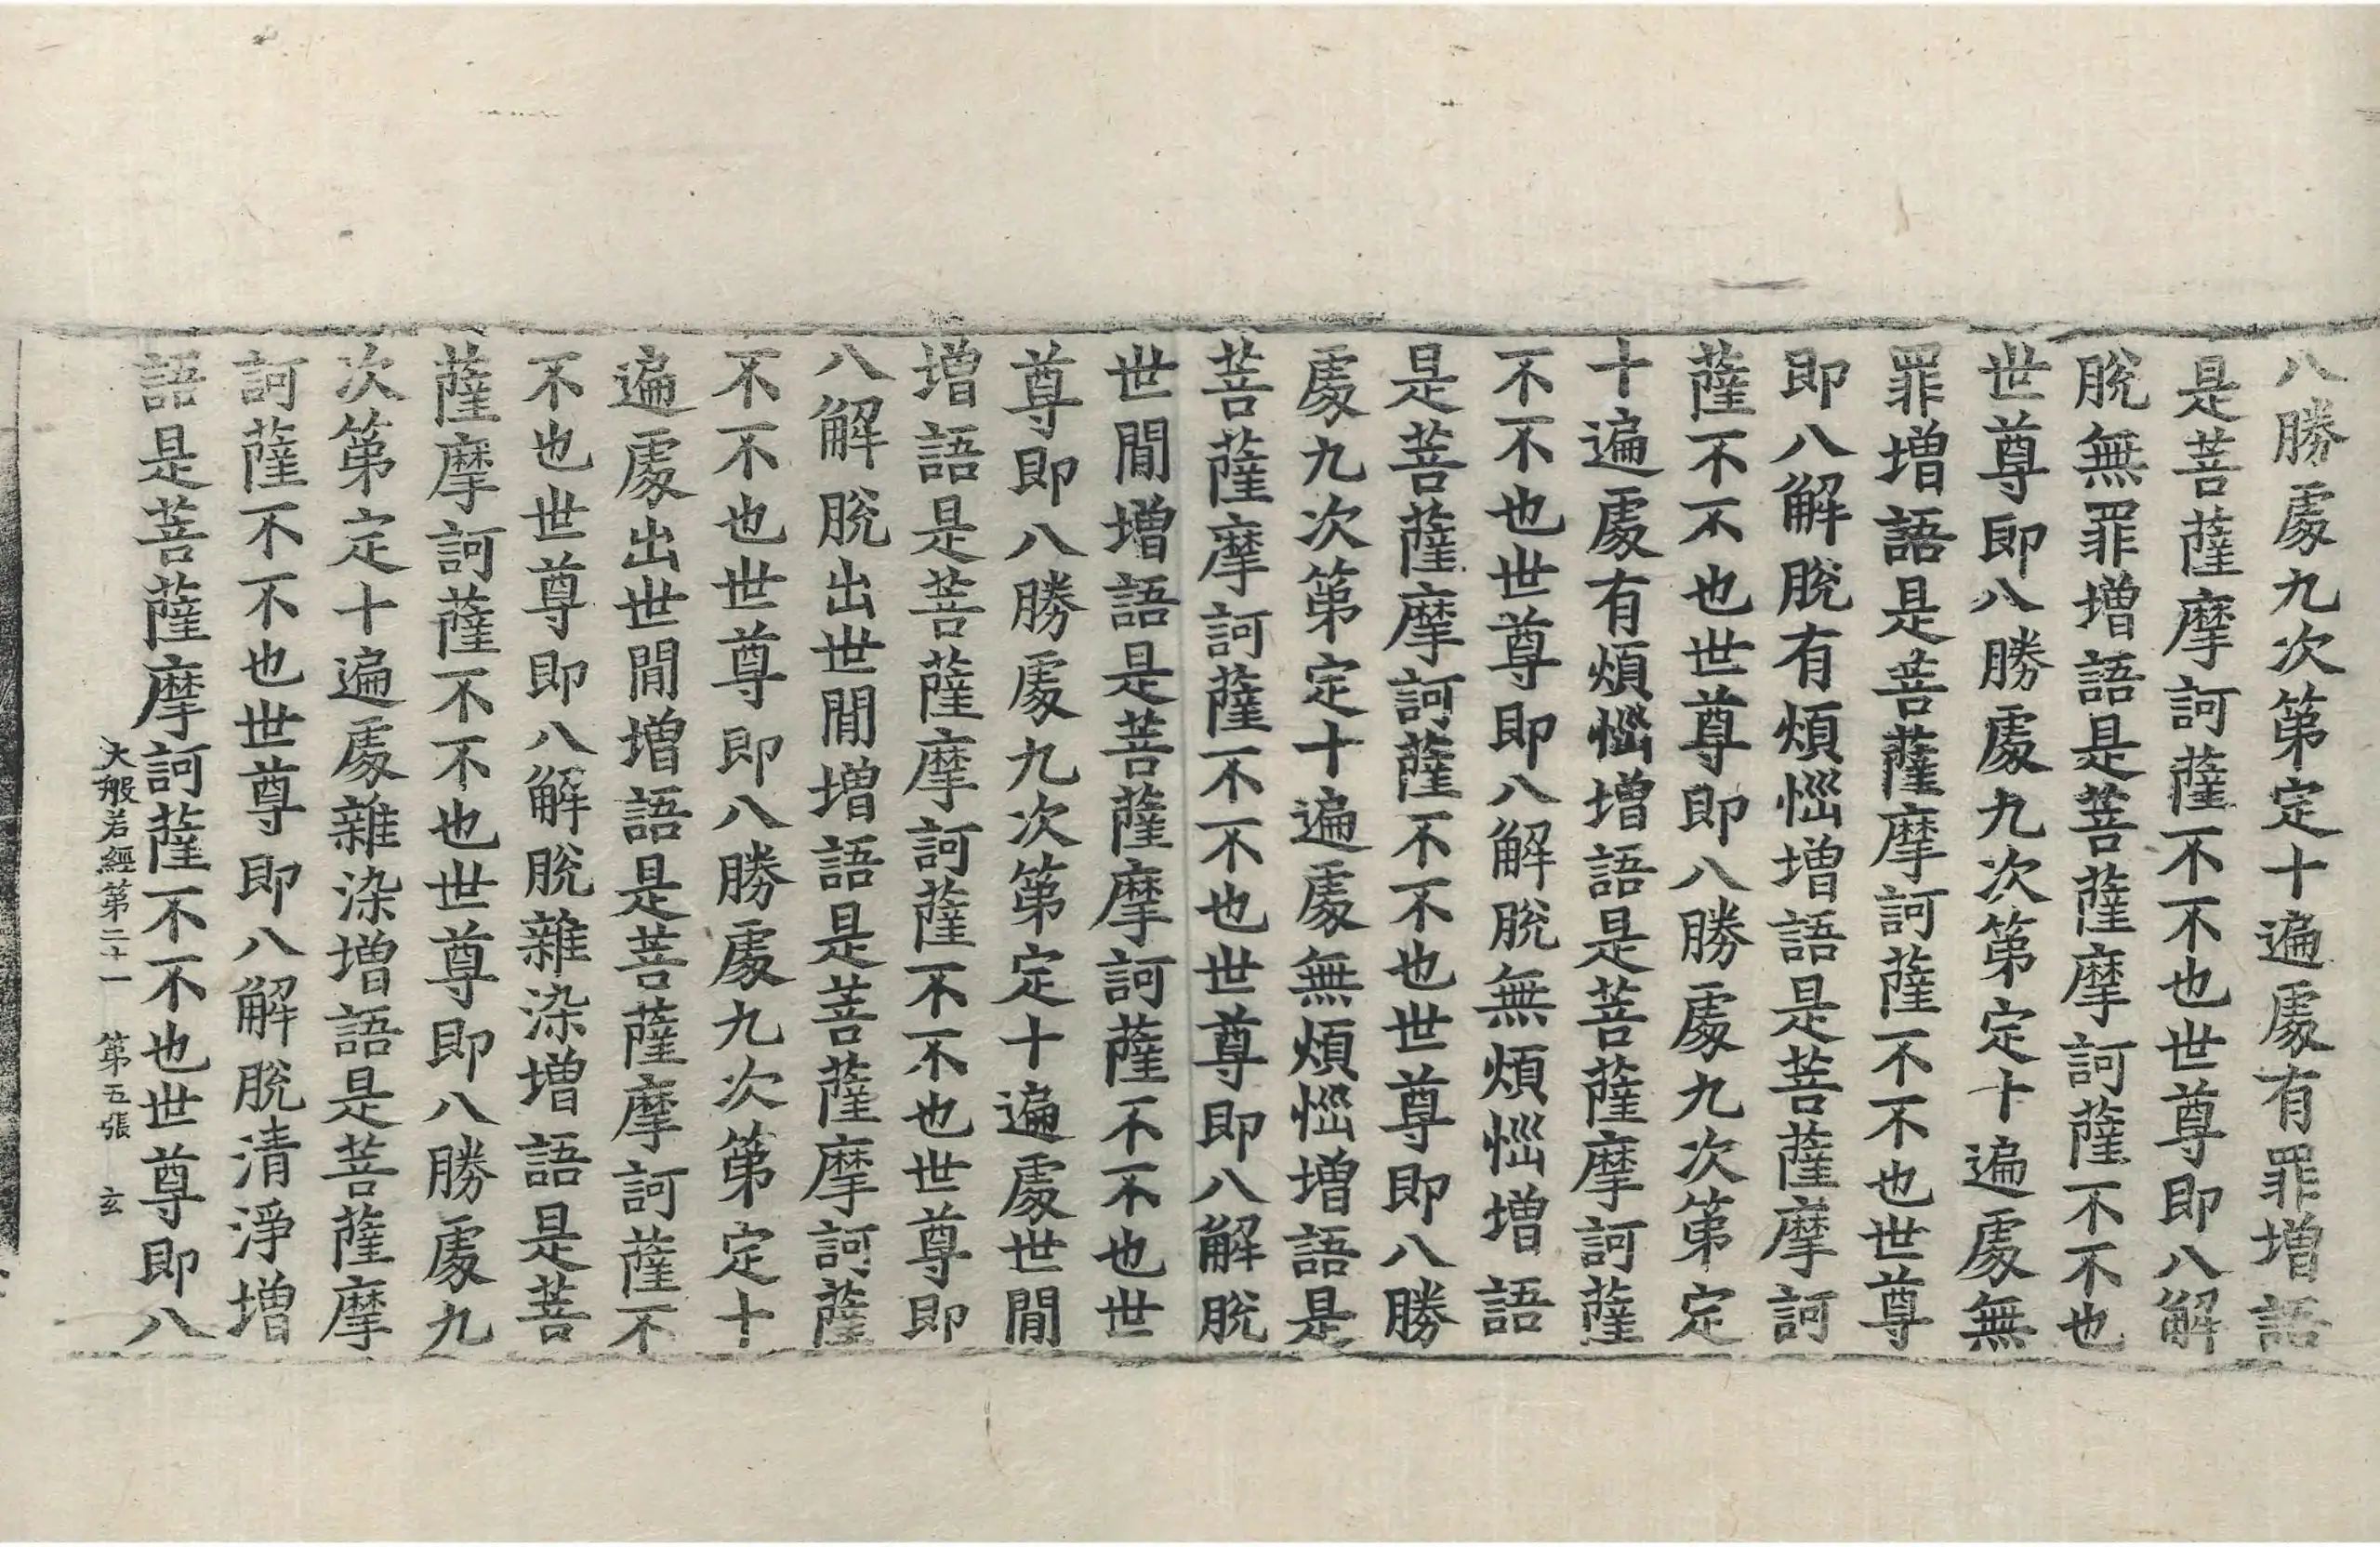 八勝處九次第定十遍處有罪增語
是菩薩摩訶薩不不也世尊即八解
脫無罪增語是菩薩摩訶薩不不也
世尊即八勝處九次第定十遍處無
罪增語是菩薩摩訶薩不不也世尊
即八解脫有煩惱增語是菩薩摩訶
薩不不也世尊即八勝處九次第定
十遍處有煩惱增語是菩薩摩訶薩
不不也世尊即八解脫無煩惱增語
是菩薩摩訶薩不不也世尊即八勝
處九次第定十遍處無煩惱增語是
菩薩摩訶薩不不也世尊即八解脫
世間增語是菩薩摩訶薩不不也世
尊即八勝處九次第定十遍處世間
增語是菩薩摩訶薩不不也世尊即
八解脫出世間增語是菩薩摩訶薩
不不也世尊即八勝處九次第定十
遍處出世間增語是菩薩摩訶薩不
不也世尊即八解脫雜染增語是菩
薩摩訶薩不不也世尊即八勝處九
次第定十遍處雜染增語是菩薩摩
訶薩不不也世尊即八解脫清淨增
語是菩薩摩訶薩不不也世尊即八
大般若經第二十一 第五張 玄